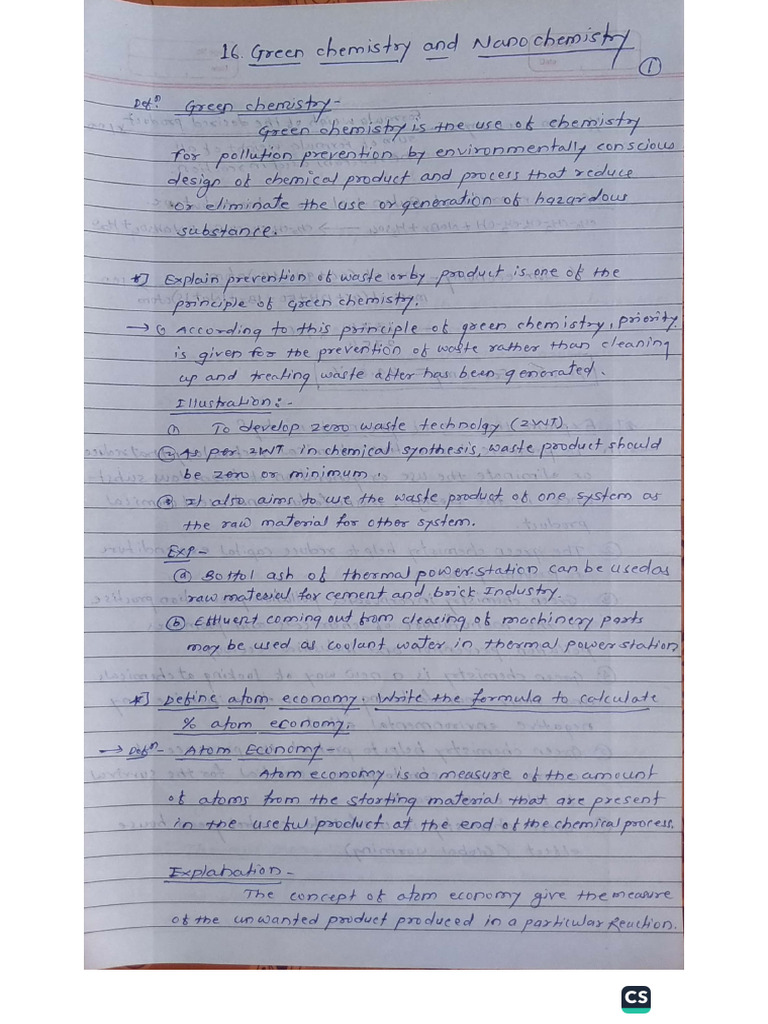 16. Green chemistry and Nanochemistry
①
Defⁿ. Green chemistry-
Green chemistry is the use of chemistry
for pollution prevention by environmentally conscious
design of chemical product and process that reduce
or eliminate the use or generation of hazardous
substance.
*] Explain prevention of waste or by product is one of the
principle of Green chemistry.
→ ① According to this principle of green chemistry, priority
is given for the prevention of waste rather than cleaning
up and treating waste after has been generated.
Illustration:-
① To develop zero waste technolgy (ZWT)
② As per ZWT in chemical synthesis, waste product should
be zero or minimum.
③ It also aims to use the waste product of one system as
the raw material for other system.
Exp-
ⓐ Bottol ash of thermal power station can be used as
raw material for cement and brick Industry.
ⓑ Effluent coming out from cleasing of machinery parts
may be used as coolant water in thermal power station
*] Define atom economy. Write the formula to calculate
% atom economy.
→ Defⁿ- Atom Economy-
Atom economy is a measure of the amount
of atoms from the starting material that are present
in the useful product at the end of the chemical process.
Explanation-
The concept of atom economy give the measure
of the unwanted product produced in a particular Reaction.
CS